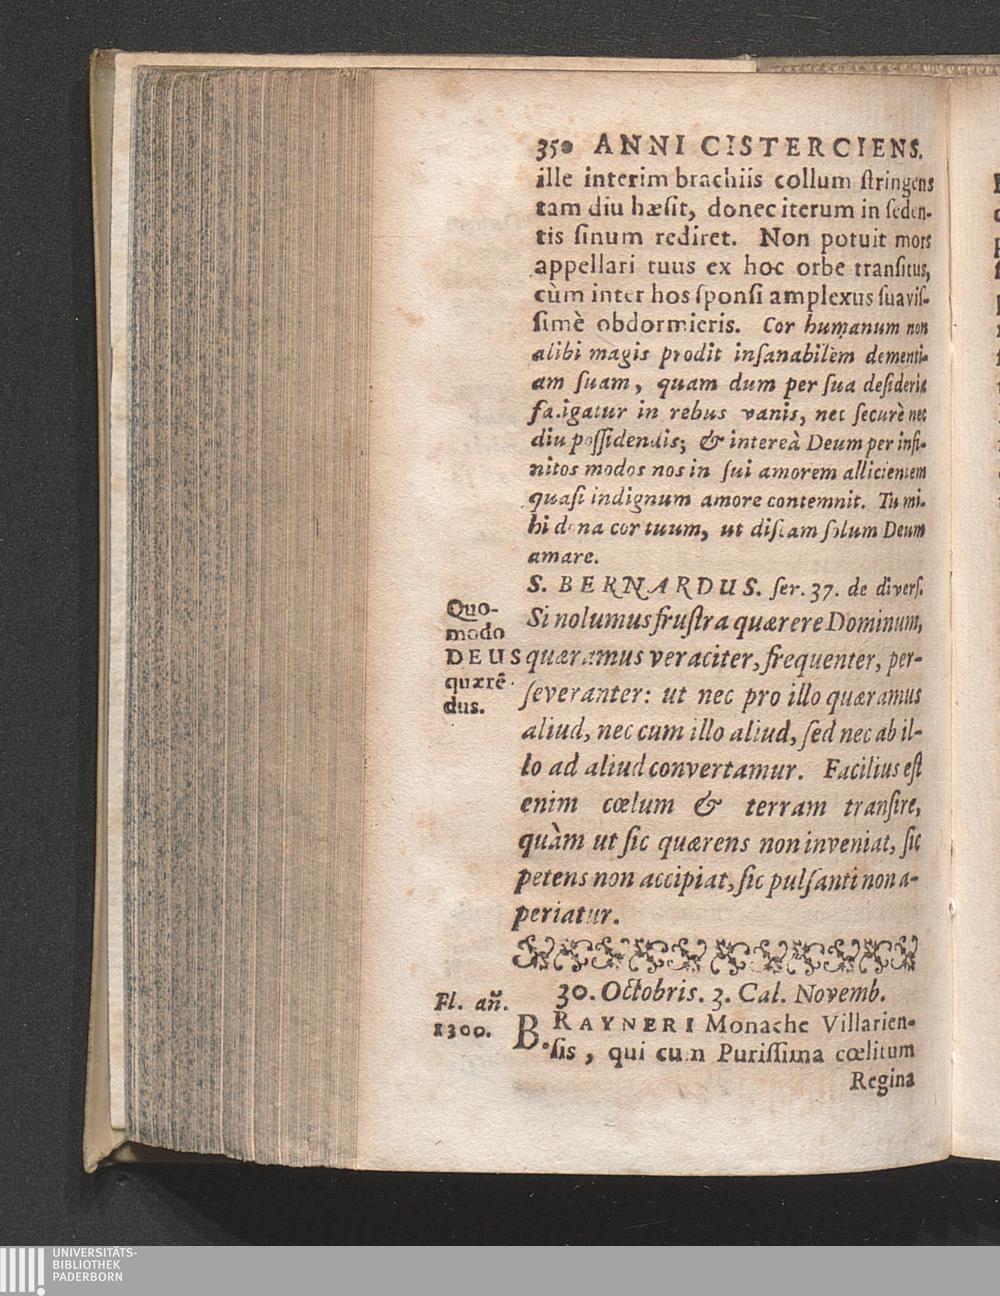 350 ANNI CISTERCIENS.
ille interim brachiis collum ſtringens
tam diu hæſit, donec iterum in ſeden-
tis ſinum rediret. Non potuit mors
appellari tuus ex hoc orbe tranſitus,
cùm inter hos ſponſi amplexus ſuaviſ-
ſimè obdormieris. Cor humanum non
alibi magis prodit inſanabilem dementi-
am ſuam, quam dum per ſua deſideria
fatigatur in rebus vanis, nec ſecurè nec
diu poſſidendis; & intereà Deum per infi-
nitos modos nos in ſui amorem allicientem
quaſi indignum amore contemnit. Tu mi-
hi dona cor tuum, ut diſcam ſolum Deum
amare.
S. BERNARDUS. ſer. 37. de diverſ.
Si nolumus fruſtra quærere Dominum,
quæramus veraciter, frequenter, per-
ſeveranter: ut nec pro illo quæramus
aliud, nec cum illo aliud, ſed nec ab il-
lo ad aliud convertamur. Facilius eſt
enim cœlum & terram tranſire,
quàm ut ſic quærens non inveniat, ſic
petens non accipiat, ſic pulſanti non a-
periatur.
Quo-
modo
DEUS
quærē-
dus.
30. Octobris. 3. Cal. Novemb.
Fl. añ.
1300.
B. RAYNERI Monache Villarien-
ſis, qui cum Puriſſima cœlitum
Regina
UNIVERSITÄTS-
BIBLIOTHEK
PADERBORN